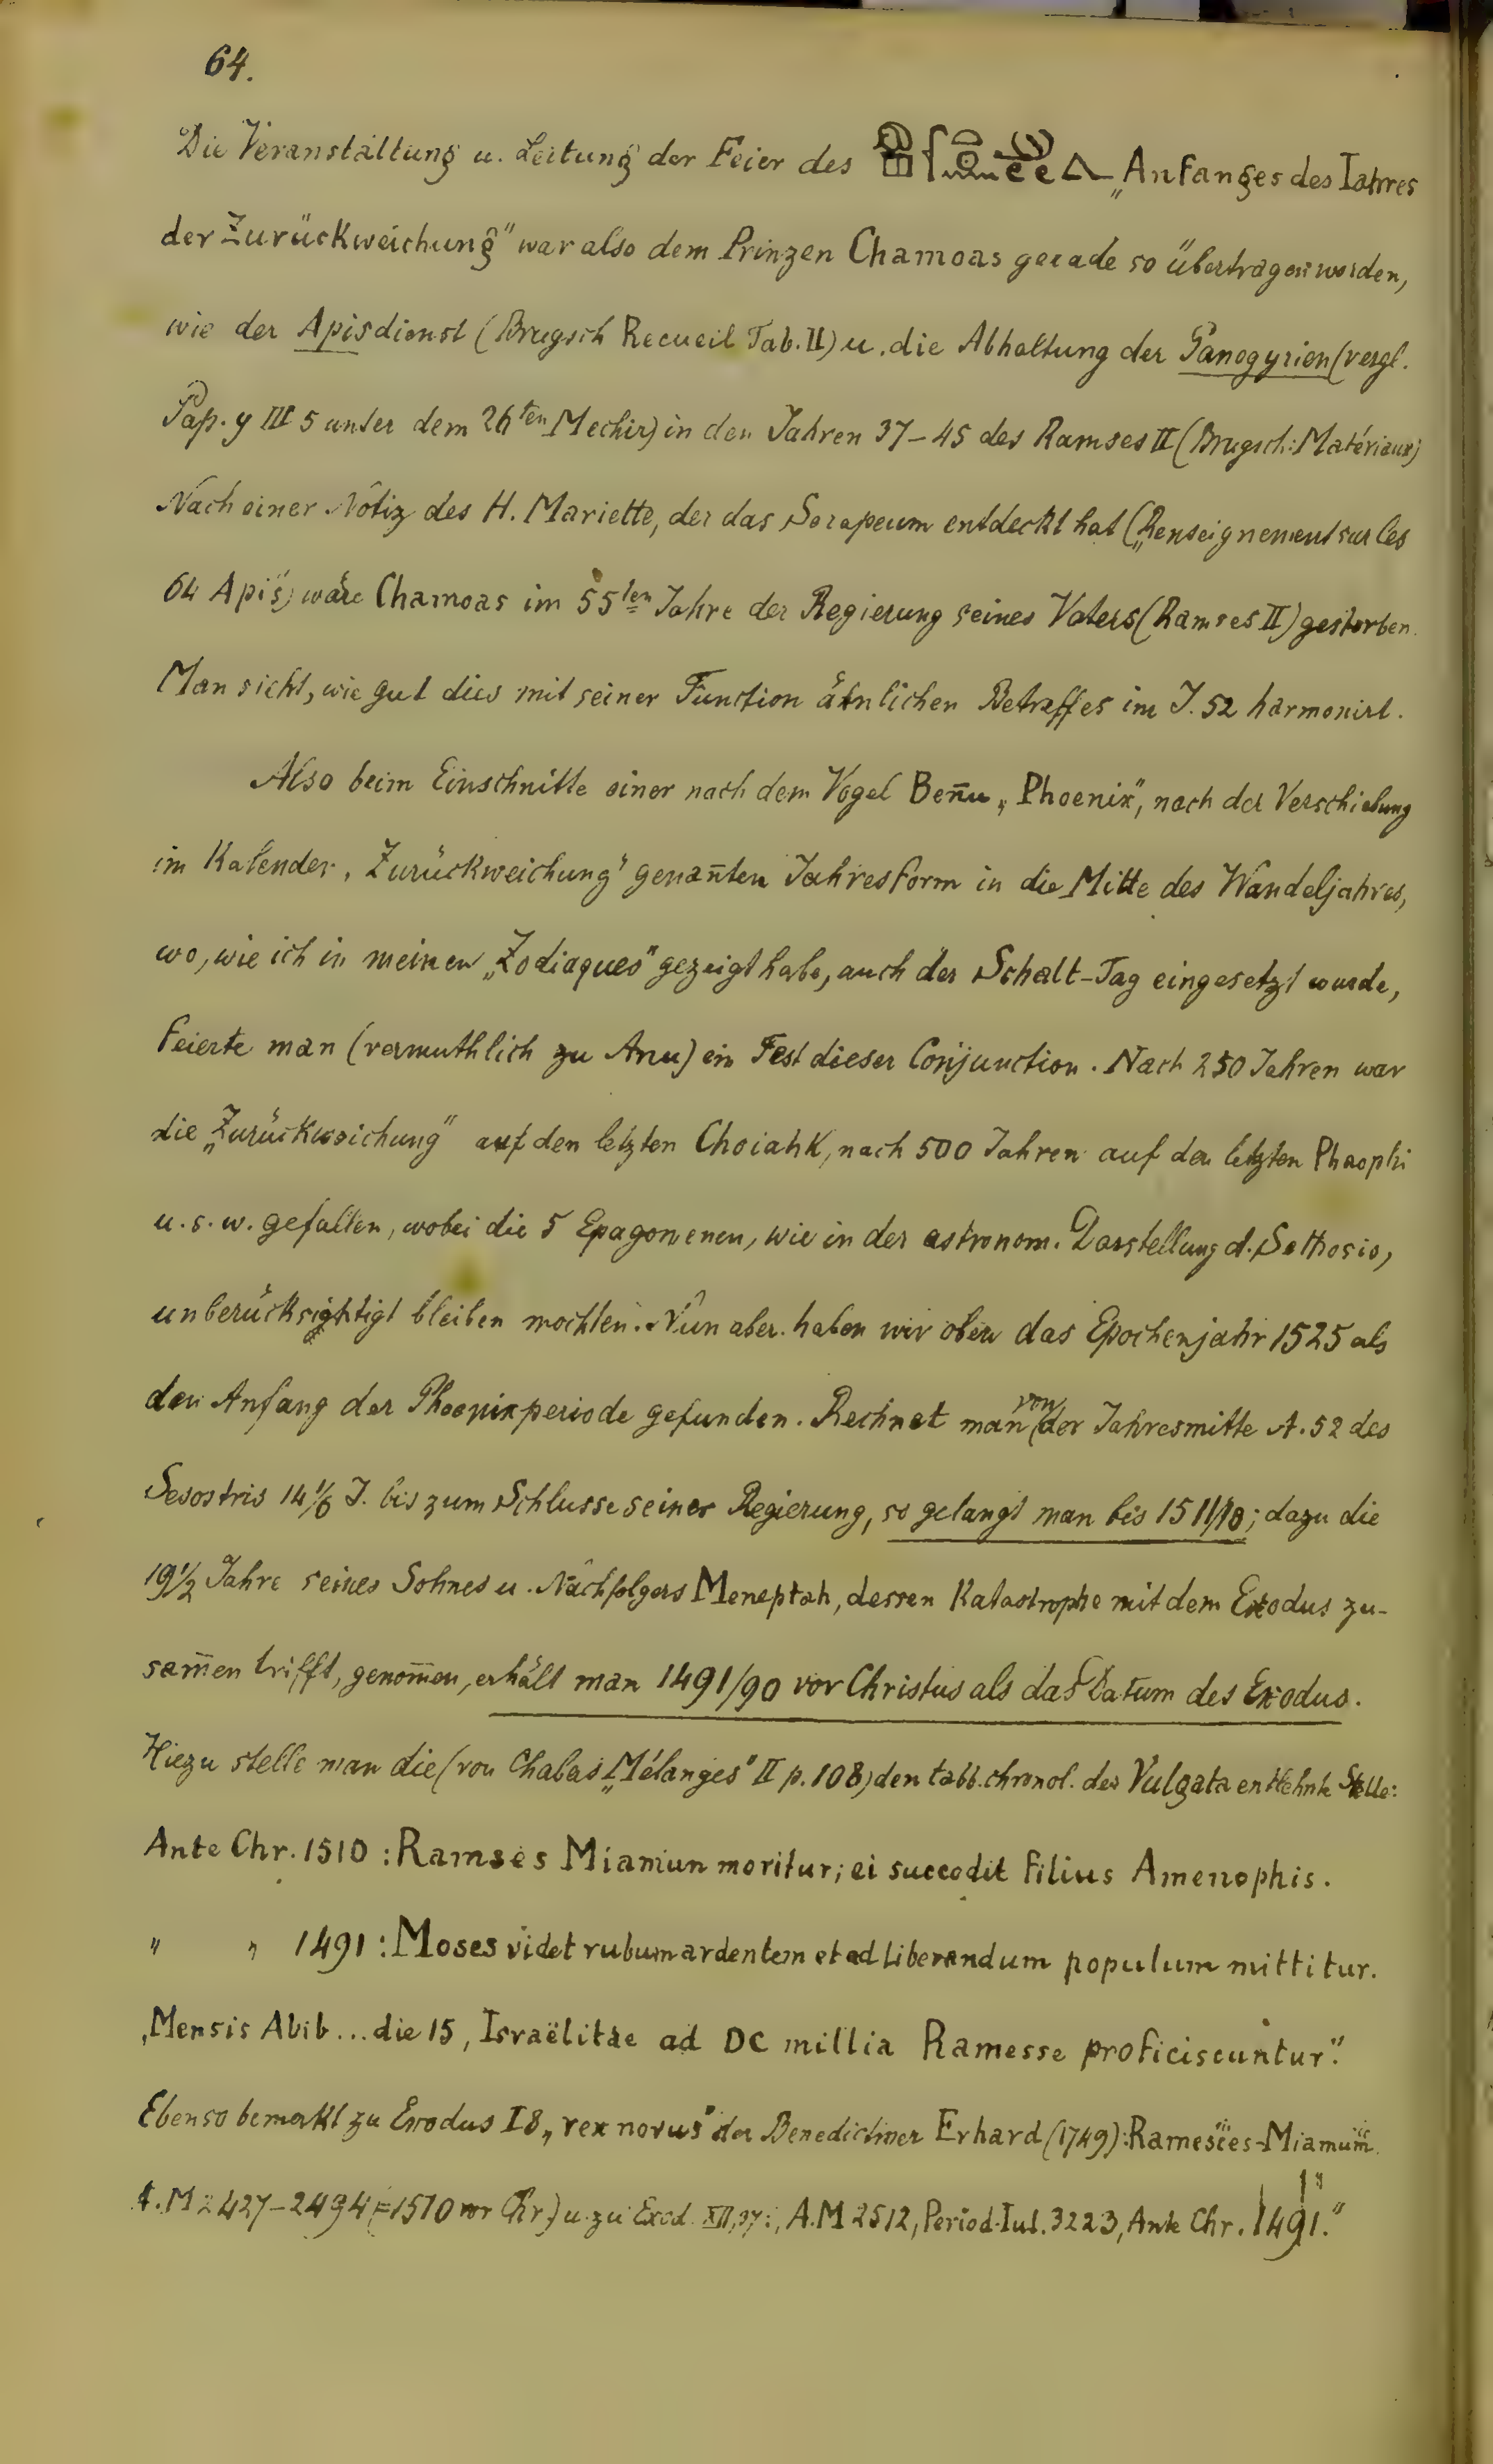 64.
Die Veranstaltung u. Leitung der Feier des „Anfanges des Iahres
der Zurückweichung" war also dem Prinzen Chamoas gerade so übertragen worden,
wie der Apisdienst (Brugsch Recueil Tab. II) u. die Abhaltung der Panegyrien (vergl.
Pap. y III 5 unter dem 26ten Mechir) in den Jahren 37–45 des Ramses II (Brugsch: Matériaux)
Nach einer Notiz des H. Mariette, der das Serapeum entdeckt hat („Renseignement sur les
64 Apis") wäre Chamoas im 55ten Jahre der Regierung seines Vaters (Ramses II) gestorben.
Man sieht, wie gut dies mit seiner Function ähnlichen Betreffes im J. 52 harmonirt.
Also beim Einschnitte einer nach dem Vogel Beñu „Phoenix", nach der Verschiebung
im Kalender „Zurückweichung" genan̄ten Jahresform in die Mitte des Wandeljahres,
wo, wie ich in meinen „Zodiaques" gezeigt habe, auch der Schalt-Tag eingesetzt wurde,
feierte man (vermuthlich zu Anu) ein Fest dieser Conjunction. Nach 250 Jahren war
die „Zurückweichung" auf den letzten Choiahk, nach 500 Jahren auf den letzten Phaophi
u. s. w. gefallen, wobei die 5 Epagomenen, wie in der astronom. Darstellung d. Sethosis,
unberücksichtigt bleiben mochten. Nun aber haben wir oben das Epochenjahr 1525 als
den Anfang der Phoenixperiode gefunden. Rechnet man von der Jahresmitte A. 52 des
Sesostris 14 1/6 J. bis zum Schlusse seiner Regierung, so gelangt man bis 1511/10; dazu die
19½ Jahre seines Sohnes u. Nachfolgers Meneptah, dessen Katastrophe mit dem Exodus zu-
sam̄en trifft, genom̄en, erhält man 1491/90 vor Christus als das Datum des Exodus.
Hiezu stelle man die (von Chabas „Mélanges" II p. 108) den tabb. chronol. der Vulgata entlehnte Stelle:
Ante Chr. 1510 : Ramses Miamun moritur; ei succedit filius Amenophis.
" " 1491 : Moses videt rubum ardentem et ad liberandum populum mittitur.
„Mensis Abib ... die 15, Israëlitae ad DC millia Ramesse proficiscuntur."
Ebenso bemerkt zu Exodus I 8 „rex novus" der Benedictiner Erhard (1749): Ramesses-Miamum
A. M 2427–2494 (=1510 vor Chr) u. zu Exod. XII, 37: „A. M 2512, Period. Iul. 3223, Ante Chr. 1491."